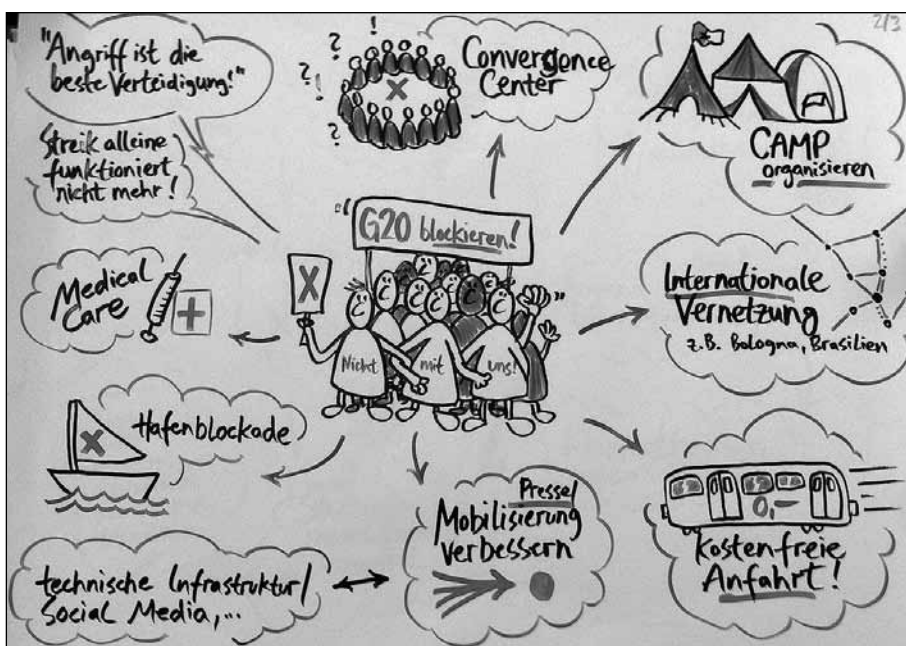 2/3
"Angriff ist die
beste Verteidigung!"
Streik alleine
funktioniert
nicht mehr!
? ? ? ? ! !
X
Convergence
Center
CAMP
organisieren
"G20 blockieren!"
X
Nicht mit uns!
Medical
Care
+
Internationale
Vernetzung
z.B. Bologna, Brasilien
X
Hafenblockade
Presse/
Mobilisierung
verbessern
0,-
kostenfreie
Anfahrt!
technische Infrastruktur/
Social Media,...